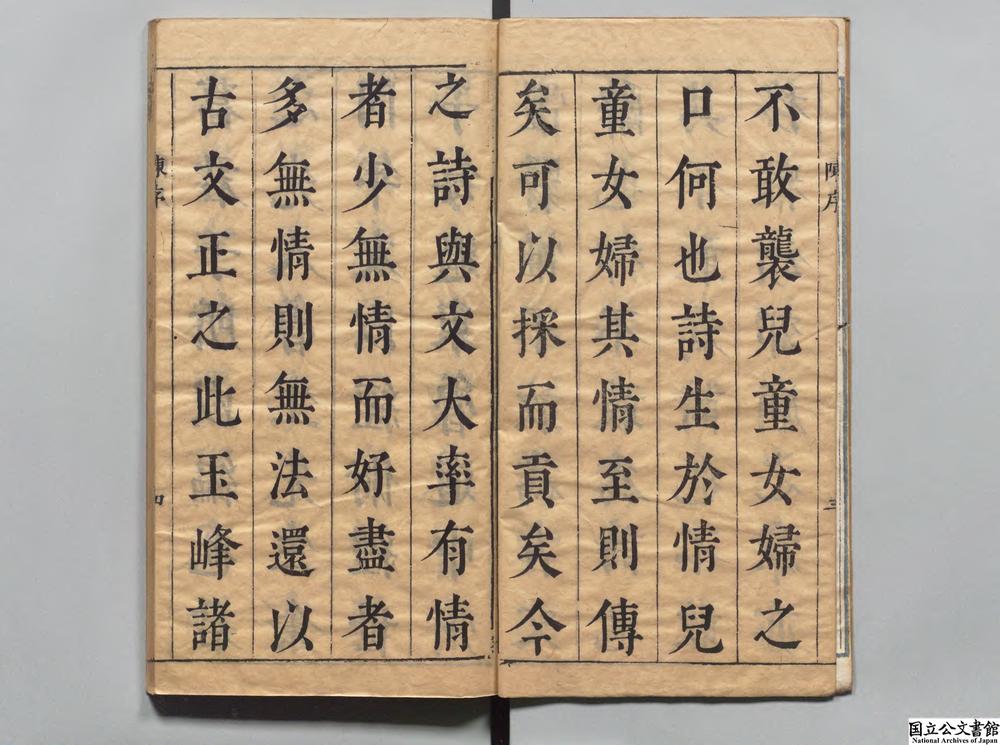 陳序
三
不敢襲兒童女婦之
口何也詩生於情兒
童女婦其情至則傳
矣可以採而貢矣今
之詩與文大率有情
者少無情而好盡者
多無情則無法還以
古文正之此玉峰諸
陳序
四
国立公文書館
National Archives of Japan